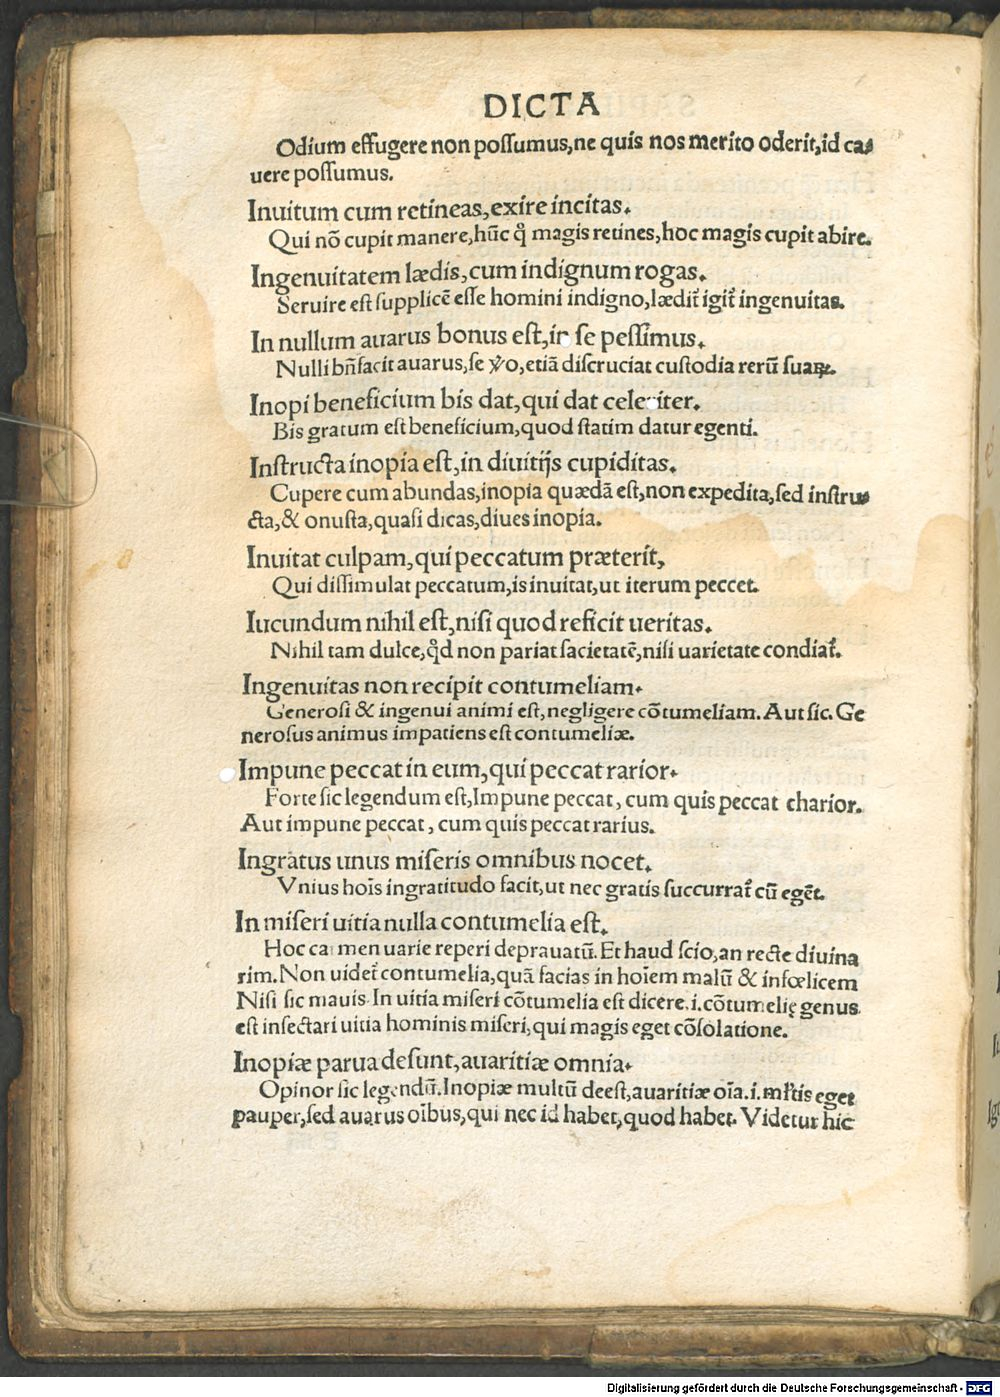 DICTA
Odium effugere non possumus,ne quis nos merito oderit,id ca-
uere possumus.
Inuitum cum retineas,exire incitas.
Qui nō cupit manere,hūc q̄ magis retines,hoc magis cupit abire.
Ingenuitatem lædis,cum indignum rogas.
Seruire est supplicē esse homini indigno,lædit̄ igit̄ ingenuitas.
In nullum auarus bonus est,in se pessimus.
Nulli bn̄facit auarus,se ỽo,etiā discruciat custodia rerū suaꝝ.
Inopi beneficium bis dat,qui dat celeriter.
Bis gratum est beneficium,quod statim datur egenti.
Instructa inopia est,in diuitijs cupiditas.
Cupere cum abundas,inopia quædā est,non expedita,sed instru-
cta,& onusta,quasi dicas,diues inopia.
Inuitat culpam,qui peccatum præterit,
Qui dissimulat peccatum,is inuitat,ut iterum peccet.
Iucundum nihil est,nisi quod reficit ueritas.
Nihil tam dulce,qd̄ non pariat facietatē,nisi uarietate condiat̄.
Ingenuitas non recipit contumeliam.
Generosi & ingenui animi est,negligere cōtumeliam.Aut sic.Ge
nerosus animus impatiens est contumeliæ.
Impune peccat in eum,qui peccat rarior.
Forte sic legendum est,Impune peccat, cum quis peccat charior.
Aut impune peccat, cum quis peccat rarius.
Ingratus unus miseris omnibus nocet.
Vnius hoīs ingratitudo facit,ut nec gratis succurrat̄ cū egēt.
In miseri uitia nulla contumelia est.
Hoc carmen uarie reperi deprauatū.Et haud scio,an recte diuina
rim.Non uidet̄ contumelia,quā facias in hoīem malū & infœlicem
Nisi sic mauis.In uitia miseri cōtumelia est dicere.i.cōtumelię genus
est insectari uitia hominis miseri,qui magis eget cōsolatione.
Inopiæ parua desunt,auaritiæ omnia.
Opinor sic legendū.Inopiæ multū deest,auaritiæ oīa.i.ml̄tis eget
pauper,sed auarus oībus,qui nec id habet,quod habet.Videtur hic
Digitalisierung gefördert durch die Deutsche Forschungsgemeinschaft - DFG